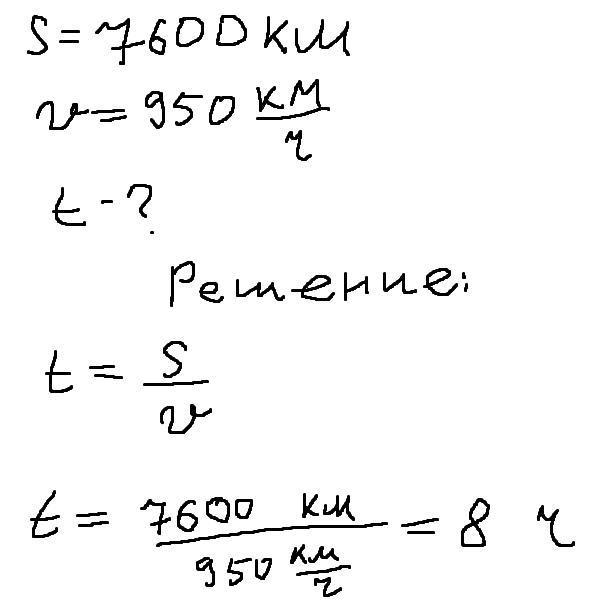 S = 7600 км
v = 950 км/ч
t - ?
Решение:
t = S/v
t = 7600 км / 950 км/ч = 8 ч